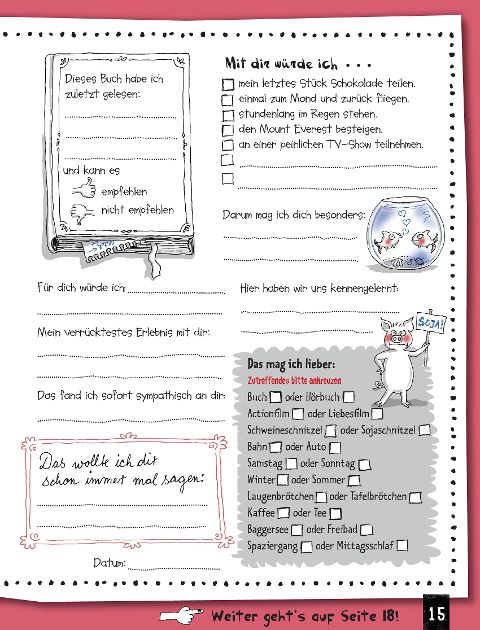 Dieses Buch habe ich
zuletzt gelesen:
und kann es
empfehlen
nicht empfehlen
Mit dir würde ich . . .
mein letztes Stück Schokolade teilen.
einmal zum Mond und zurück fliegen.
stundenlang im Regen stehen.
den Mount Everest besteigen.
an einer peinlichen TV-Show teilnehmen.
Darum mag ich dich besonders:
Für dich würde ich
Mein verrücktestes Erlebnis mit dir:
Das fand ich sofort sympathisch an dir:
Hier haben wir uns kennengelernt:
SOJA!
Das mag ich lieber:
Zutreffendes bitte ankreuzen
Buch oder Hörbuch
Actionfilm oder Liebesfilm
Schweineschnitzel oder Sojaschnitzel
Bahn oder Auto
Samstag oder Sonntag
Winter oder Sommer
Laugenbrötchen oder Tafelbrötchen
Kaffee oder Tee
Baggersee oder Freibad
Spaziergang oder Mittagsschlaf
Das wollte ich dir
schon immer mal sagen:
Datum:
Weiter geht's auf Seite 18!
15